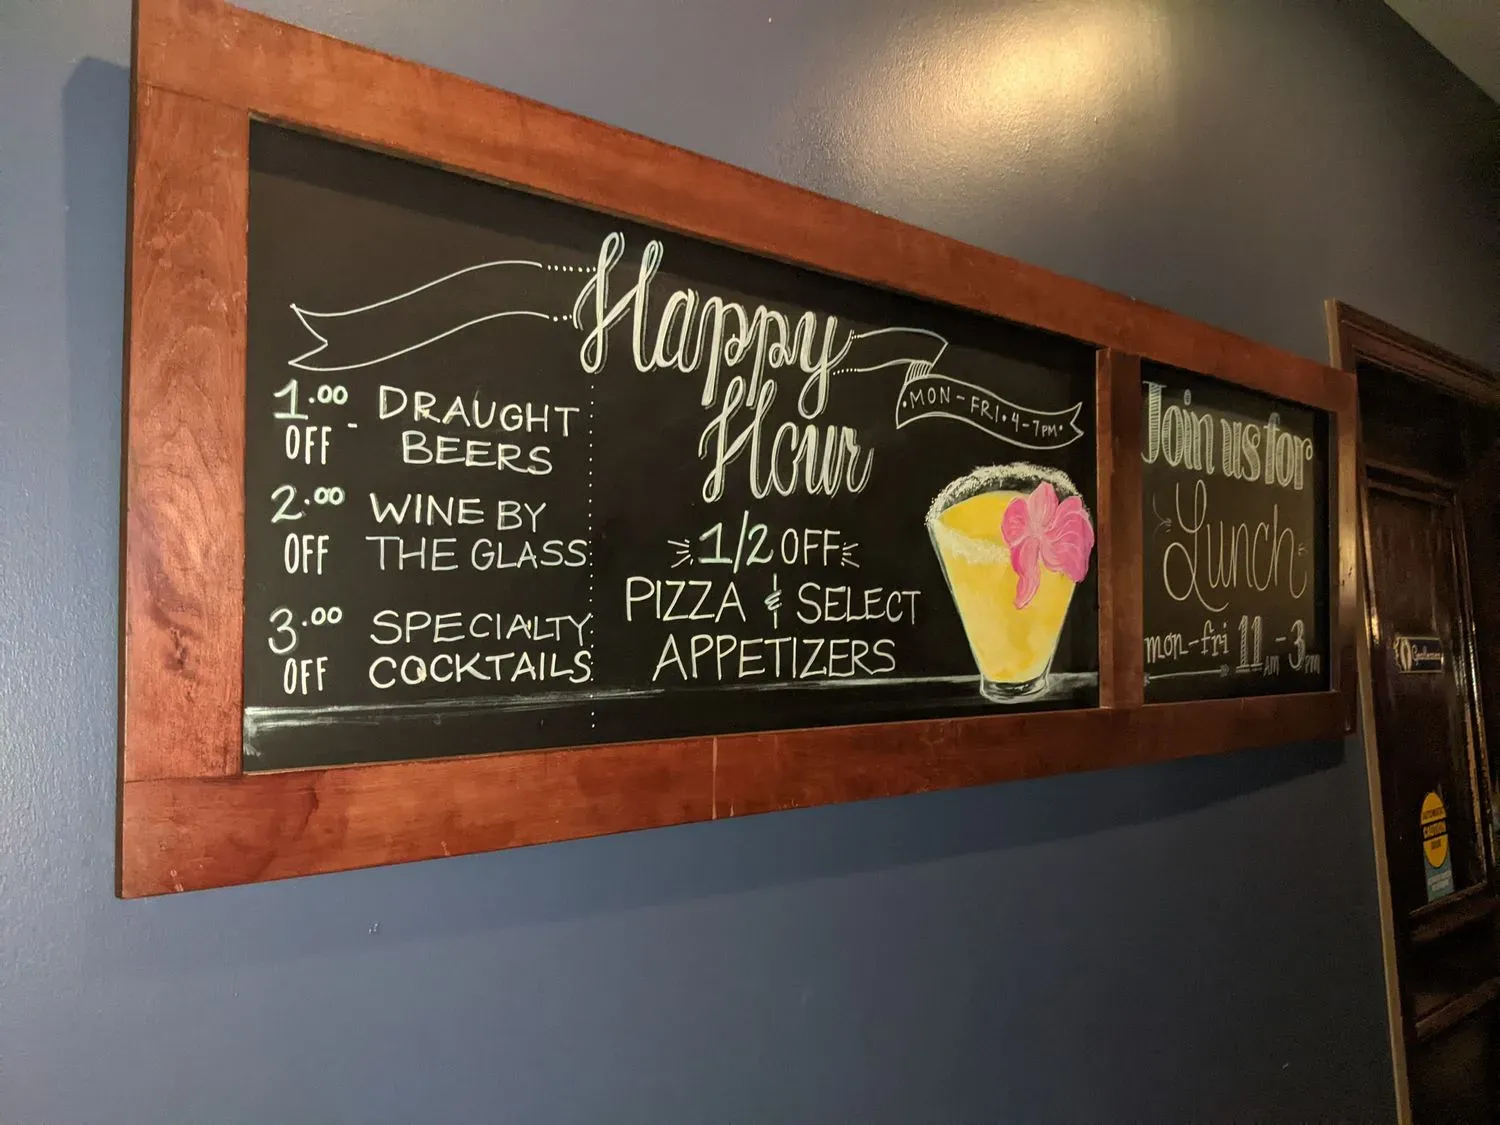 Happy
Hour
•MON-FRI•4-7PM•
1.00 OFF - DRAUGHT
BEERS
2.00 OFF WINE BY
THE GLASS
3.00 OFF SPECIALTY
COCKTAILS
1/2 OFF
PIZZA & SELECT
APPETIZERS
Join us for
Lunch
mon-fri 11AM-3PM
Gentlemen
CAUTION